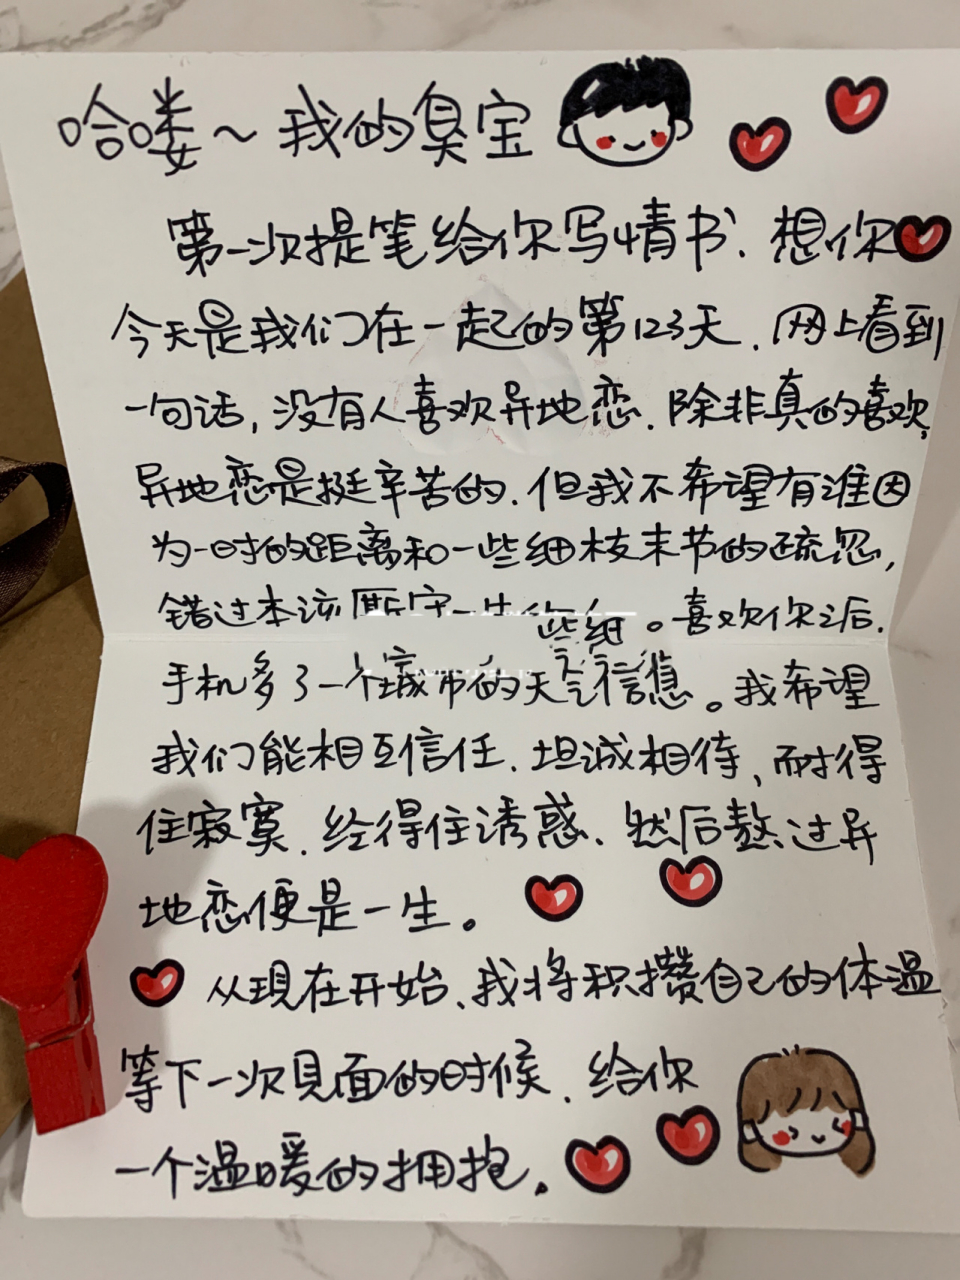 哈喽～我的臭宝
第一次提笔给你写情书、想你
今天是我们在一起的第123天.网上看到
一句话,没有人喜欢异地恋.除非真的喜欢,
异地恋是挺辛苦的.但我不希望有谁因
为一时的距离和一些细枝末节的疏忽,
错过本该 一生 些细。喜欢你之后.
手机多了一个城市的天气信息。我希望
我们能相互信任.坦诚相待、耐得
住寂寞.经得住诱惑、然后熬过异
地恋便是一生。
从现在开始、我将积攒自己的体温
等下一次见面的时候.给你
一个温暖的拥抱.